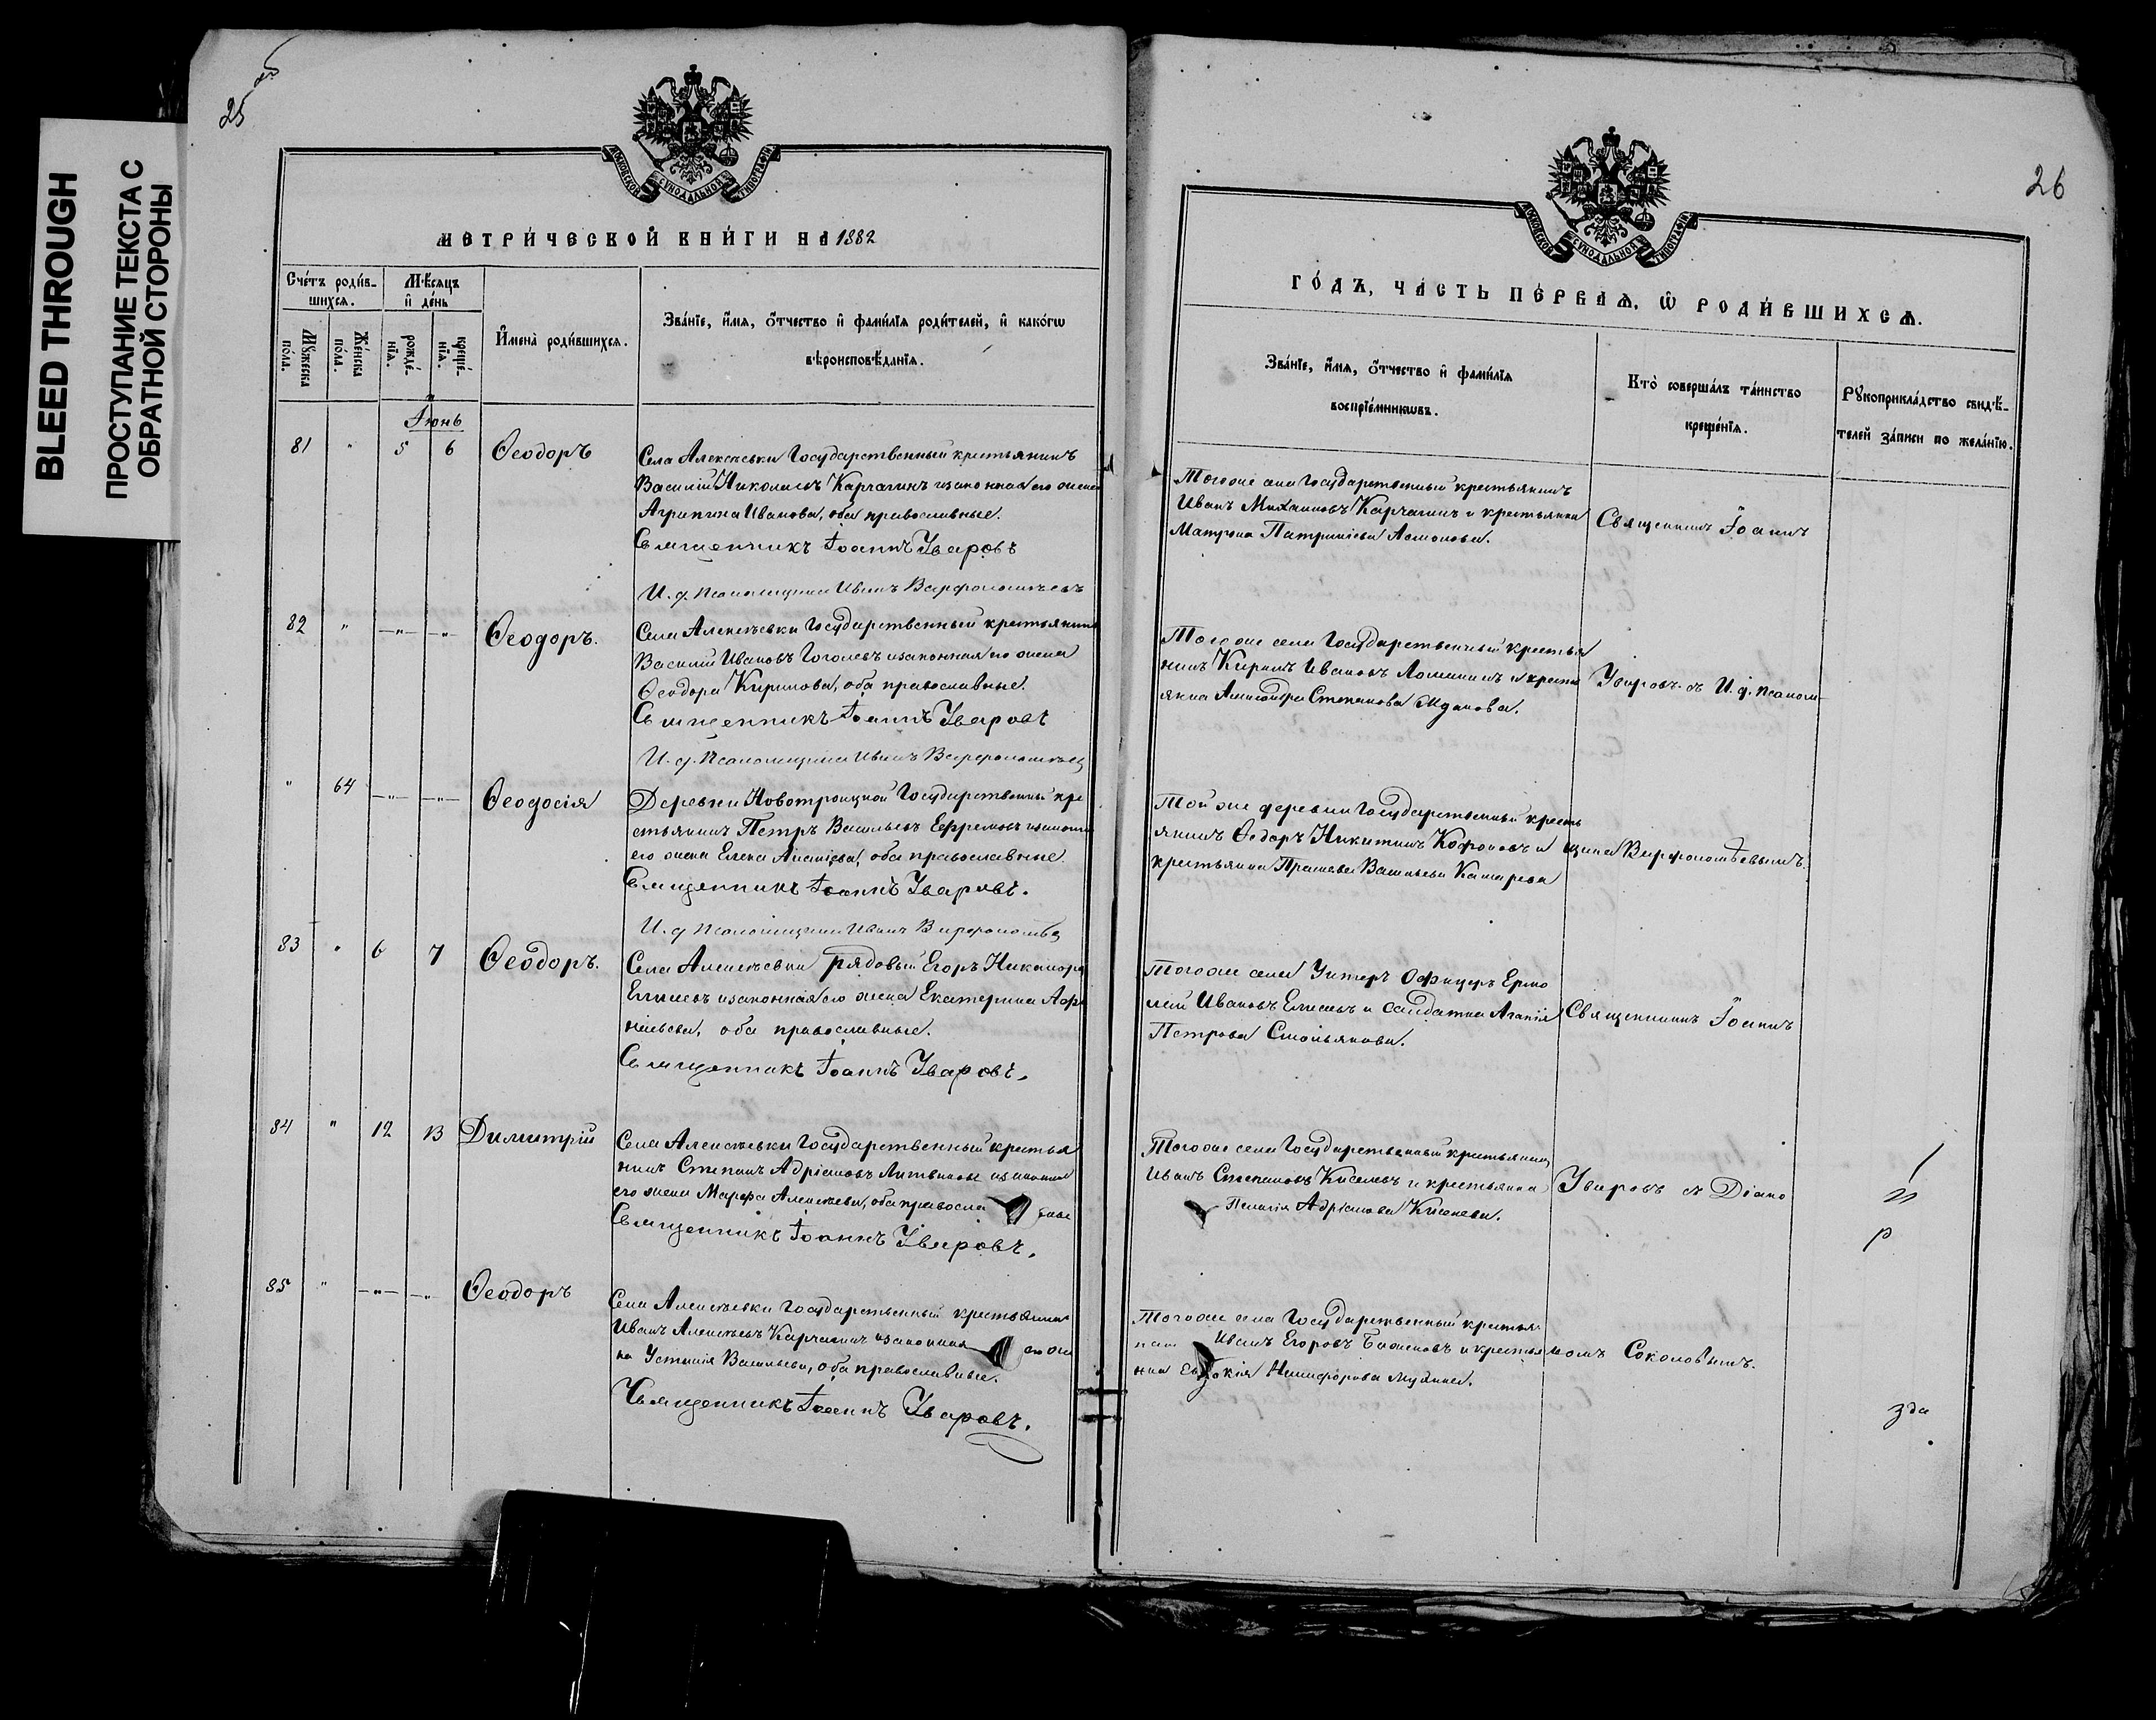 BLEED THROUGH
ПРОСТУПАНИЕ ТЕКСТА С
ОБРАТНОЙ СТОРОНЫ
25 об
МОСКОВСКОЙ СУНОДАЛЬНОЙ ТИПОГРАФІИ
МЕТРИЧЕСКОЙ КНИГИ НА 1882
Счетъ родив-
шихся.
Мѣсяцъ
и день
Мужеска
пола.
Женска
пола.
рожде-
нія.
креще-
нія.
Имена родившихся.
Званіе, имя, отчество и фамилія родителей, и какогѡ
вѣроисповѣданія.
Іюнь
81 " 5 6 Ѳеодоръ
Села Алексѣевки Государственный крестьянинъ
Василій Николаевъ Карчагинъ изаконная его жена
Агрипина Иванова, оба православные.
Священникъ Іоаннъ Уваровъ
И. д. Псаломщика Иванъ Варфоломѣевъ
82 " —"— —"— Ѳеодоръ.
Села Алексѣевки Государственный крестьянинъ
Василій Ивановъ Гоголевъ изаконная его жена
Ѳеодора Кирилова, оба православные.
Священникъ Іоаннъ Уваровъ
И. д. Псаломщика Иванъ Варфоломѣев
" 64 —"— —"— Ѳеодосія
Деревни Новотроицкой Государственный кре
стьянинъ Петръ Васильевъ Ефремовъ
его жена Елена, оба православные
Священникъ Іоаннъ Уваровъ.
И. д. Псаломщика Иванъ Варфоломѣ
83 " 6 7 Ѳеодоръ.
Села Алексѣевки рядовый Егоръ Никаноро
Елисеевъ изаконная его жена Екатерина
оба православные.
Священникъ Іоаннъ Уваровъ.
84 " 12 13 Димитрій
Села Алексѣевки Государственный крестья
нинъ Степанъ Адріановъ Литвиновъ
его жена Марфа Алексѣева, оба правосла вные
Священникъ Іоаннъ Уваровъ.
85 " —"— —"— Ѳеодоръ
Села Алексѣевки Государственный крестьянинъ
Иванъ Алексѣевъ Карчагинъ изаконная его же
на Устинія Васильева, оба православные.
Священникъ Іоаннъ Уваровъ.
26
МОСКОВСКОЙ СУНОДАЛЬНОЙ ТИПОГРАФІИ
ГОДЪ, ЧАСТЬ ПЕРВАЯ, Ѡ РОДИВШИХСЯ.
Званіе, имя, отчество и фамилія
воспріемникѡвъ.
Кто совершалъ таинство
крещенія.
Рукоприкладство свидѣ-
телей записи по желанію.
Тогоже села Государственный крестьянинъ
Иванъ Михаиловъ Карчагинъ и крестьянка
Матрона Патрикіева
Священникъ Іоаннъ
Тогоже села Государственный крестья
нинъ Кирилъ Ивановъ и кресть
янка Александра Степанова Жданова.
Уваровъ съ И. д. псалом-
Той же деревни Государственный кресть
янинъ Ѳедоръ Никитинъ и
крестьянка Васильева
щика Варфоломѣевымъ.
Тогоже села Унтеръ Офицеръ Ермо
лай Ивановъ Елисеевъ и солдатка Агапія
Петрова Смольянова.
Священникъ Іоаннъ
Тогоже села Государственный крестьянинъ
Иванъ Степановъ Киселевъ и крестьянка
Пелагія Адріанова Киселева.
Уваровъ съ Діако
Тогоже села Государственный крестья
нинъ Иванъ Егоровъ Баженовъ и крестья
нка Евдокія Никифорова
номъ Соколовымъ.